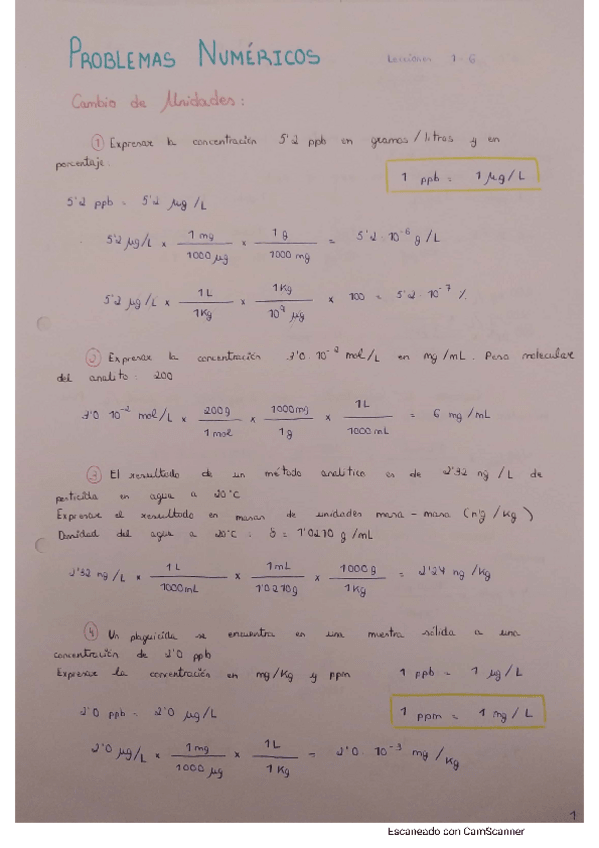 PROBLEMAS NUMÉRICOS Lecciones 1-6
Cambio de Unidades:
① Expresar la concentración 5'2 ppb en gramos/litros y en
porcentaje.
1 ppb = 1 µg/L
5'2 ppb = 5'2 µg/L
5'2 µg/L x 1 mg / 1000 µg x 1 g / 1000 mg = 5'2·10⁻⁶ g/L
5'2 µg/L x 1L / 1Kg x 1Kg / 10⁹ µg x 100 = 5'2·10⁻⁷ %
② Expresar la concentración 3'0·10⁻² mol/L en mg/mL. Peso molecular
del analito: 200
3'0 10⁻² mol/L x 200g / 1 mol x 1000mg / 1g x 1L / 1000 mL = 6 mg/mL
③ El resultado de un método analítico es de 2'32 ng/L de
pesticida en agua a 20°C
Expresar el resultado en masas de unidades masa-masa (ng/Kg)
Densidad del agua a 20°C: δ = 1'0210 g/mL
2'32 ng/L x 1L / 1000mL x 1mL / 1'0210g x 1000g / 1Kg = 2'24 ng/Kg
④ Un plaguicida se encuentra en una muestra sólida a una
concentración de 2'0 ppb
Expresar la concentración en mg/Kg y ppm
1 ppb = 1 µg/L
2'0 ppb = 2'0 µg/L
1 ppm = 1 mg/L
2'0 µg/L x 1 mg / 1000 µg x 1L / 1 Kg = 2'0·10⁻³ mg/Kg
1
Escaneado con CamScanner